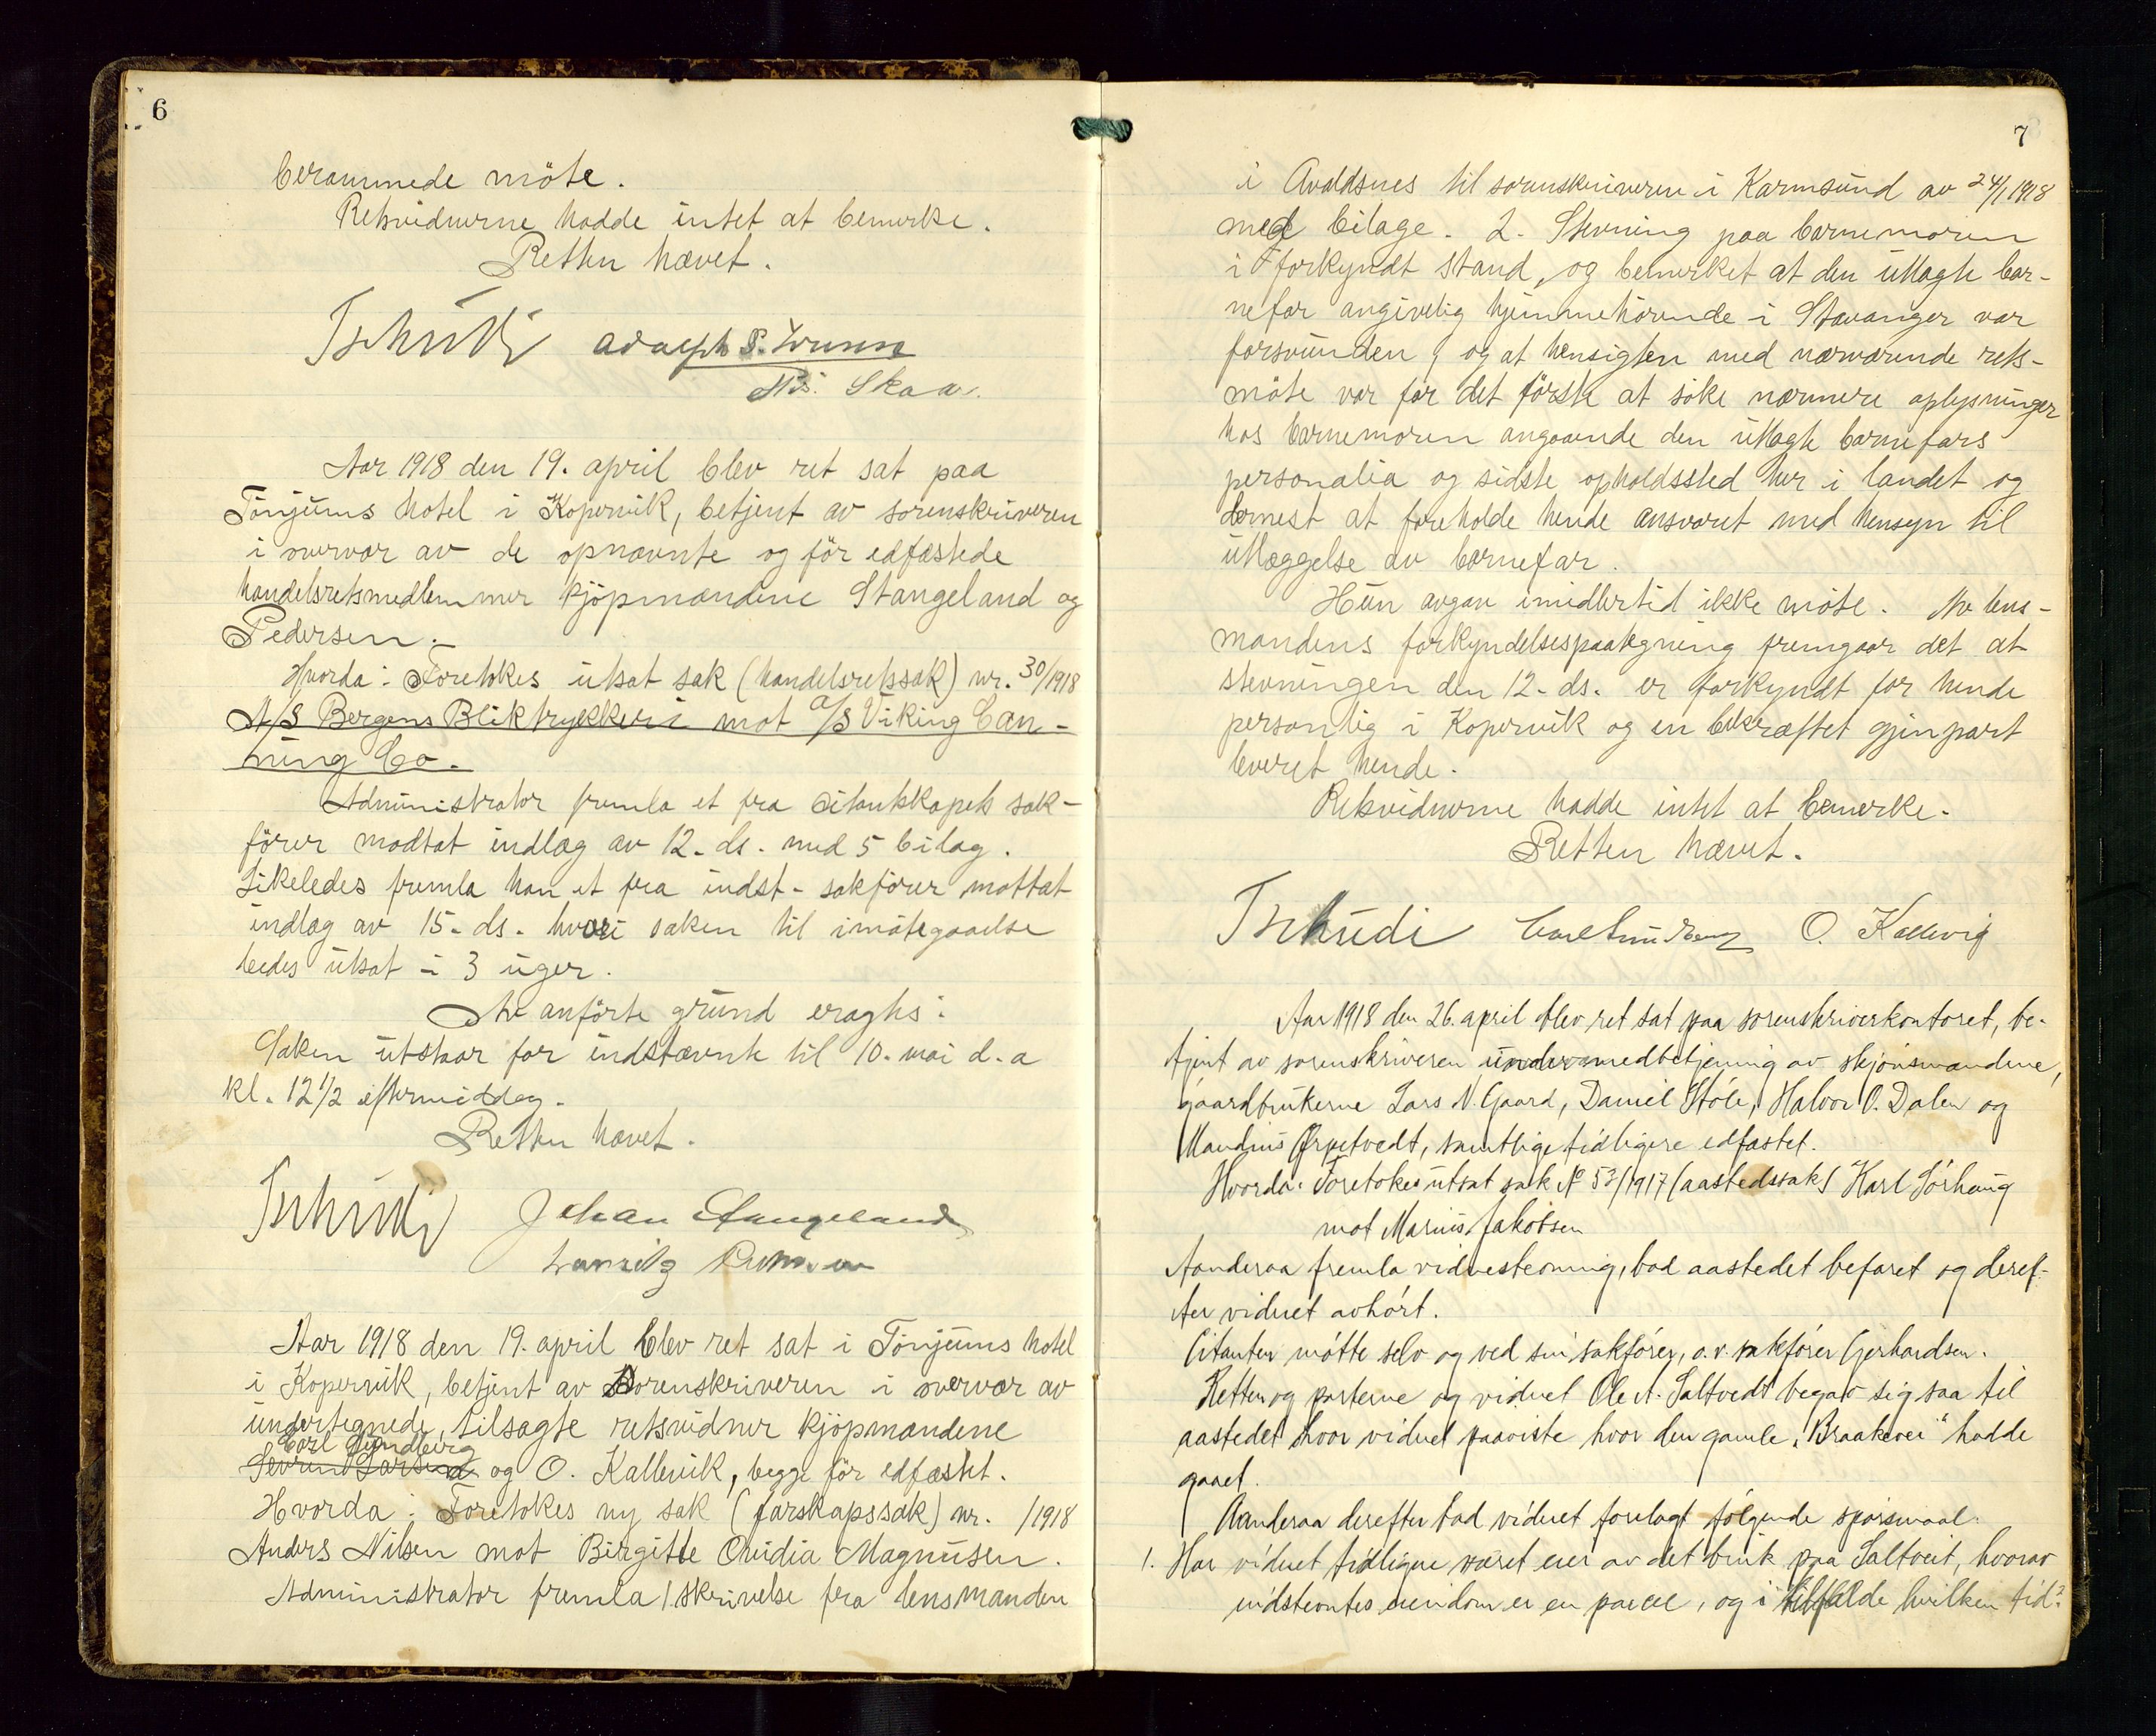 6
berammede möte.
Retsvidnerne hadde intet at bemerke.
Retten hævet.
Tschudi Adolph S.
Nis. Skaar.
Aar 1918 den 19. april blev ret sat paa
Tönjums hotel i Kopervik, betjent av sorenskriveren
i overvær av de opnævnte og för edfæstede
handelsretsmedlemmer kjöpmændene Stangeland og
Pedersen.
Hvorda: Foretokes utsat sak (handelsretssak) nr. 30/1918
A/S Bergens Bliktrykkeri mot A/S Viking Can-
ning Co.
Administrator fremla et fra citantskapets sak-
förer modtat indlæg av 12. ds. med 5 bilag.
Likeledes fremla han et fra indst. sakförer mottat
indlæg av 15. ds. hvori saken til imötegaaelse
bedes utsat i 3 uger.
Av anförte grund eragtes:
Saken utstaar for indstævnte til 10. mai d.a
kl. 12 1/2 eftermiddag.
Retten hævet.
Tschudi Johan Stangeland
Lauritz Pedersen
Aar 1918 den 19. april blev ret sat i Tönjums hotel
i Kopervik, betjent av sorenskriveren i overvær av
undertegnede, tilsagte retsvidner kjöpmændene
Carl Lundberg
Severin Larsen og O. Kallevik, begge för edfæstet.
Hvorda: Foretokes ny sak (farskapssak) nr. /1918
Anders Nilsen mot Birgitte Ovidia Magnusen.
Administrator fremla 1. skrivelse fra lensmanden
7
i Avaldsnes til sorenskriveren i Karmsund av 24/1 1918
med bilage. 2. Stevning paa barnemoren
i forkyndt stand, og bemerket at den utlagte bar-
nefar angivelig hjemmehörende i Stavanger var
forsvunden, og at hensigten med nærværende rets-
möte var for det förste at söke nærmere oplysninger
hos barnemoren angaaende den utlagte barnefars
personalia og sidste opholdssted her i landet og
dernest at foreholde hende ansvaret med hensyn til
utlæggelse av barnefar.
Hun avgav imidlertid ikke möte. Av lens-
mandens forkyndelsespaategning fremgaar det at
stevningen den 12. ds. er forkyndt for hende
personlig i Kopervik og en bekræftet gjenpart
leveret hende.
Retsvidnerne hadde intet at bemerke.
Retten hævet.
Tschudi Carl Lundberg O. Kallevig
Aar 1918 den 26. april blev ret sat paa sorenskriverkontoret, be-
tjent av sorenskriveren under medbetjening av skjönsmændene,
gaardbrukerne Lars N. Gaard, Daniel Stöle, Halvor O. Dalen og
Mandius Ørpetvedt, samtlige tidligere edfæstet.
Hvorda: Foretokes utsat sak No 53/1917 (aastedssak) Karl Sörhaug
mot Marius Jakobsen
Aanderaa fremla vidnestevning, bad aastedet befaret og deref-
ter vidnet avhört.
Citanten mötte selv og ved sin sakförer, o.r.sakförer Gerhardsen.
Retten og parterne og vidnet Ole A. Saltvedt begav sig saa til
aastedet hvor vidnet paaviste hvor den gamle "Braakevei" hadde
gaaet.
Aanderaa derefter bad vidnet forelagt fölgende spörsmaal:
1. Har vidnet tidligere været eier av det bruk paa Saltveit, hvorav
indstevntes eiendom er en parcel, og i tilfælde hvilken tid?